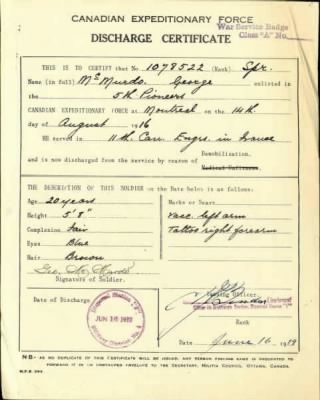 CANADIAN EXPEDITIONARY FORCE
War Service Badge
Class "A" No.
DISCHARGE CERTIFICATE
THIS IS TO CERTIFY that No 1078522 (Rank) Spr.
Name (in full) McMurdo George enlisted in
the 5th Pioneers
CANADIAN EXPEDITIONARY FORCE at Montreal on the 14th
day of August 1916
HE served in 11th Can. Engrs. in France
Demobilization.
and is now discharged from the service by reason of Medical Unfitness.
THE DESCRIPTION OF THIS SOLDIER on the Date below is as follows:
Age 20 years
Marks or Scars
Height 5' 8"
vacc. left arm
Complexion Fair
Tattoo right forearm
Eyes Blue
Hair Brown
Geo. Mc Murdo
Signature of Soldier.
Issuing Officer.
Lieutenant
Date of Discharge
JUN 16 1919
Rank
Date June 16 1919
NB- AS NO DUPLICATE OF THIS CERTIFICATE WILL BE ISSUED, ANY PERSON FINDING SAME IS REQUESTED TO
FORWARD IT IN AN UNSTAMPED ENVELOPE TO THE SECRETARY, MILITIA COUNCIL, OTTAWA, CANADA.